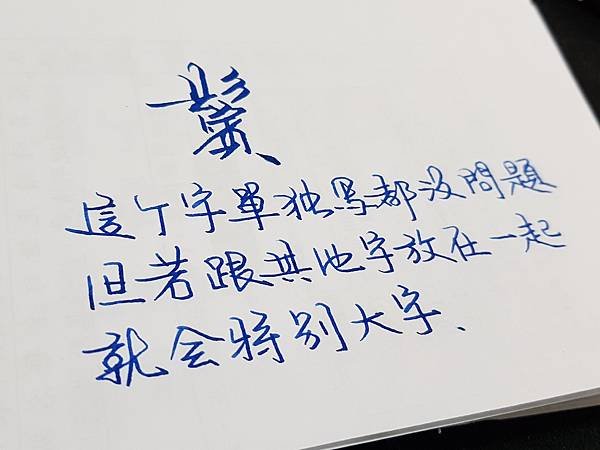 鬢
這个字單独写都没問題
但若跟其他字放在一起
就会特别大字、